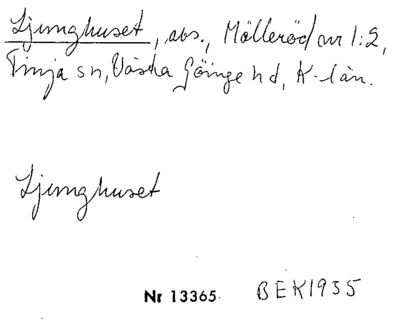 Ljunghuset, abs., Mölleröd nr 1:2,
Finja sn, Västra Göinge hd, K-län.
Ljunghuset
Nr 13365 BEK1935